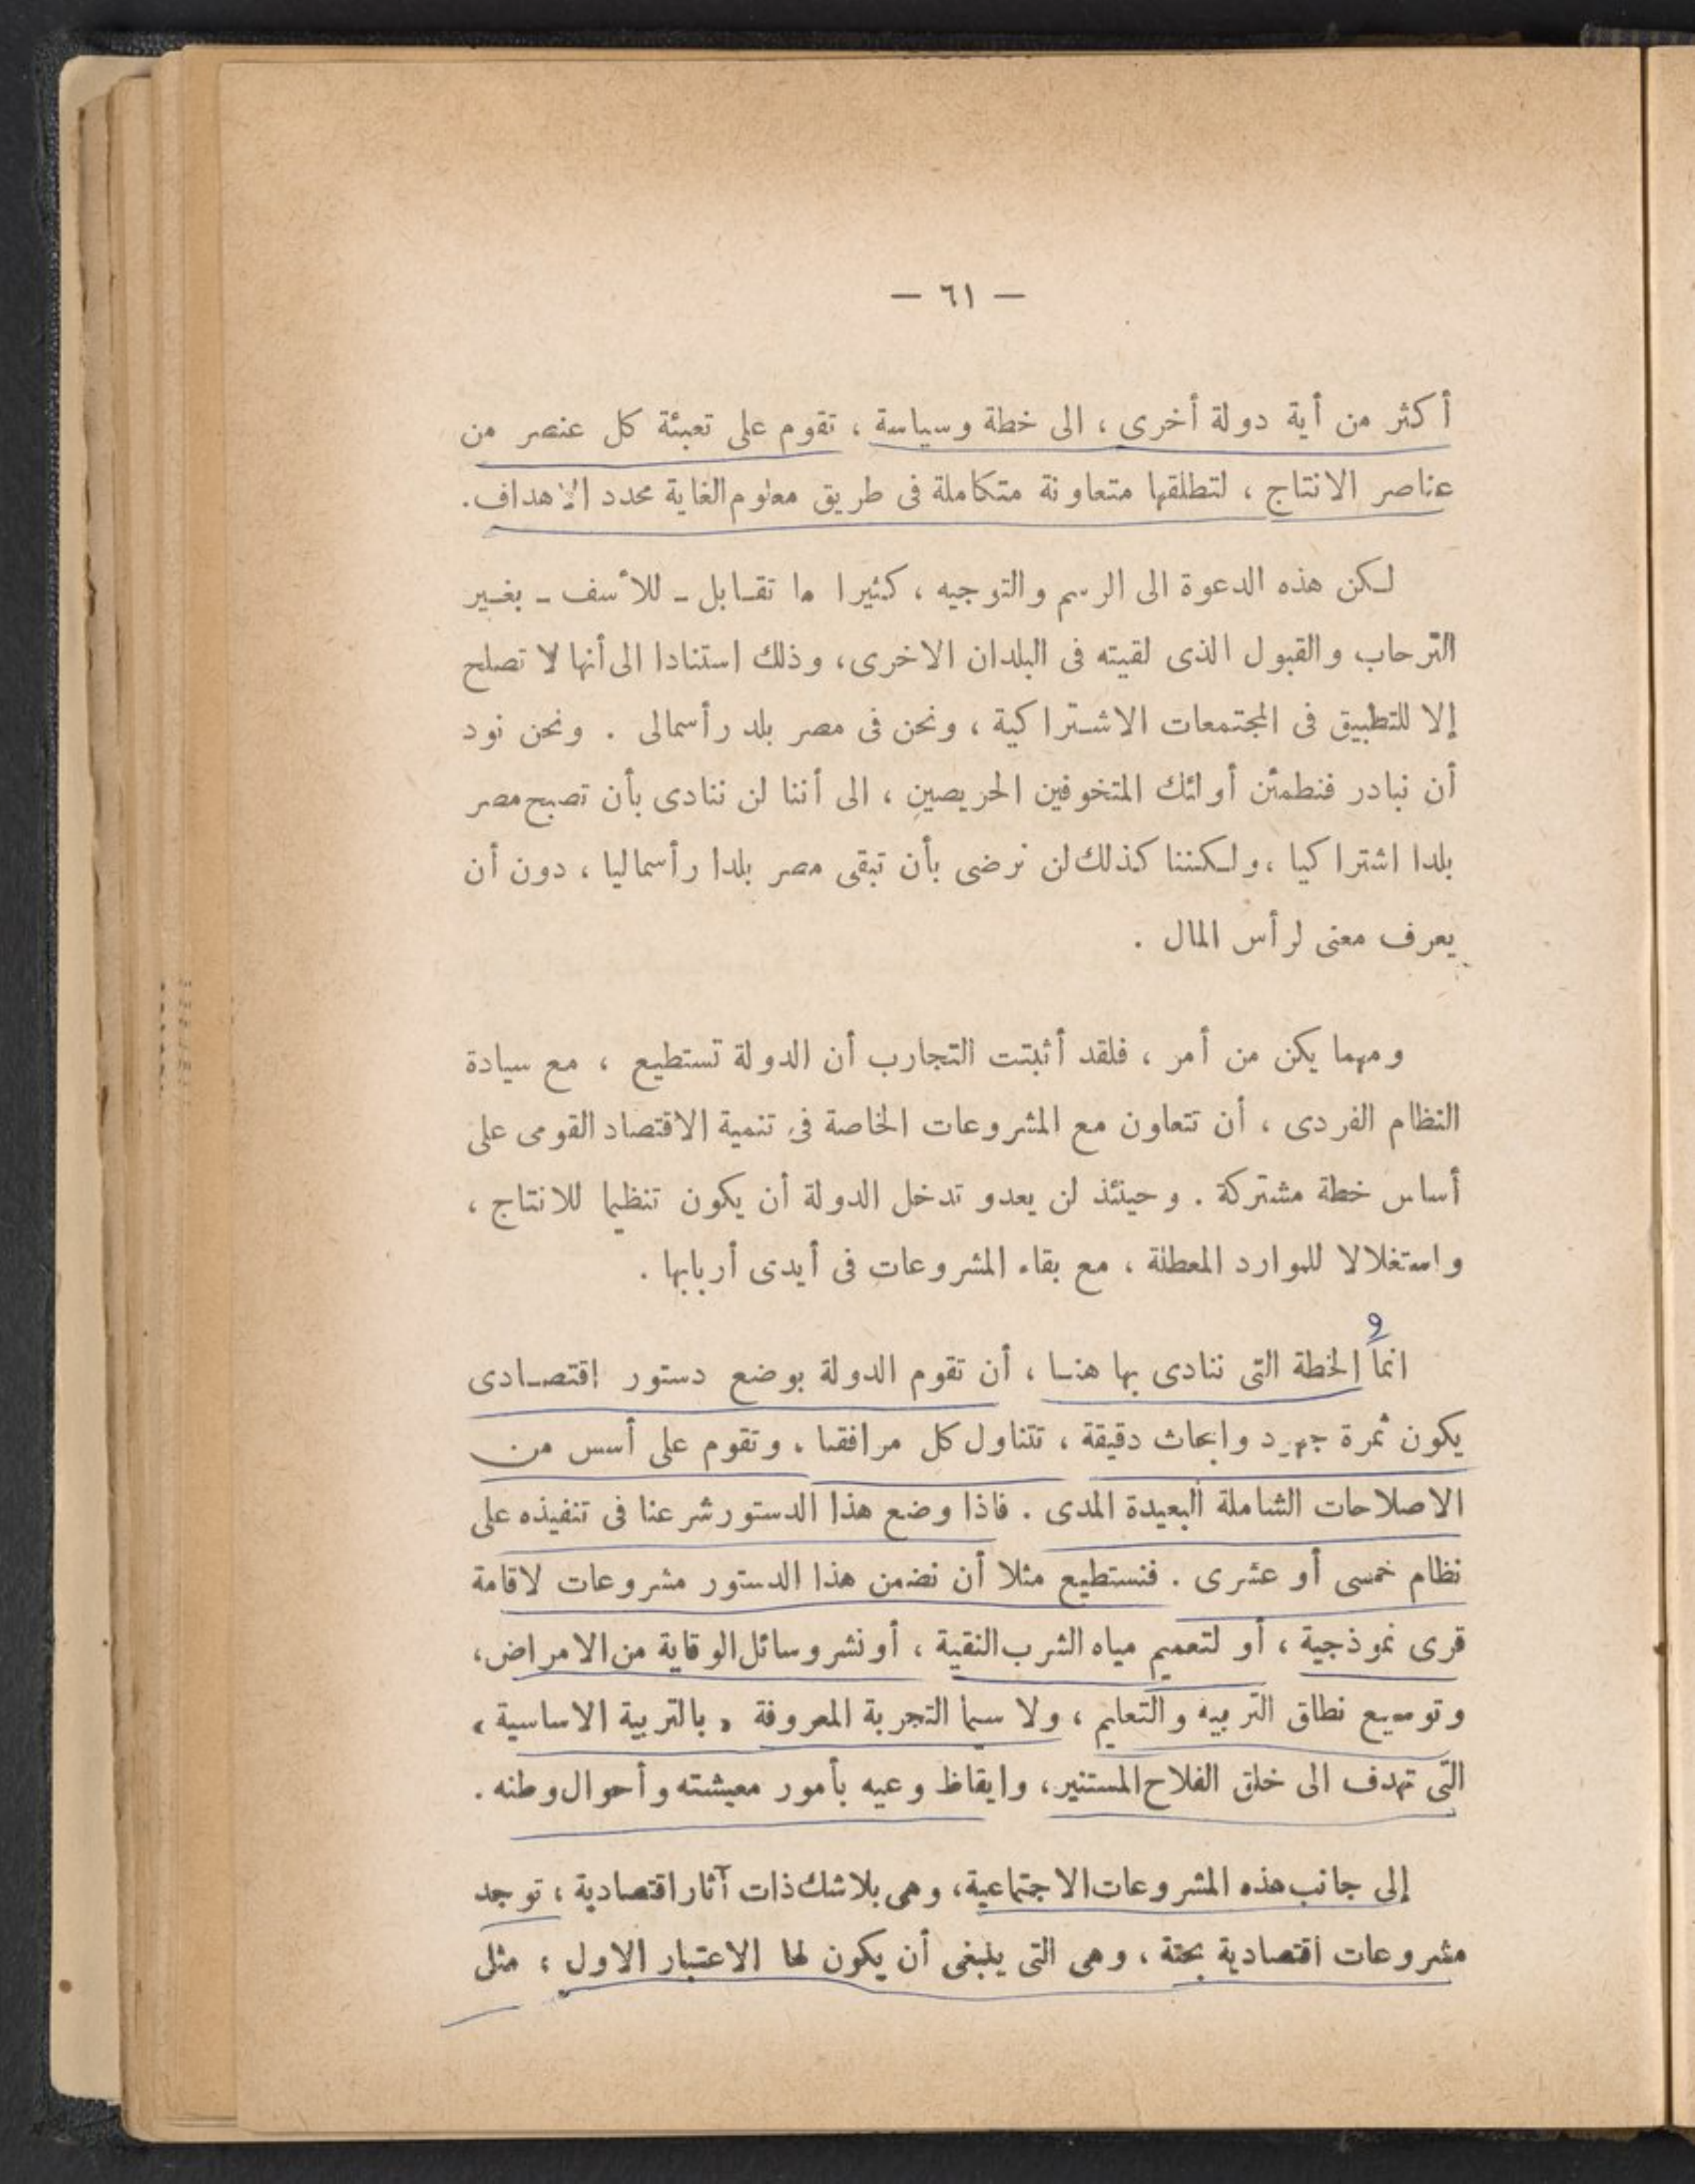 — ٦١ —
أكثر من أية دولة أخرى ، الى خطة وسياسة ، تقوم على تعبئة كل عنصر من
عناصر الانتاج ، لتطلقها متعاونة متكاملة فى طريق معلوم الغاية محدد الاهداف.
لكن هذه الدعوة الى الرسم والتوجيه ، كثيرا ما تقابل ـ للأسف ـ بغير
الترحاب والقبول الذى لقيته فى البلدان الاخرى، وذلك استنادا الى أنها لا تصلح
إلا للتطبيق فى المجتمعات الاشتراكية ، ونحن فى مصر بلد رأسمالى . ونحن نود
أن نبادر فنطمئن أولئك المتخوفين الحريصين ، الى أننا لن ننادى بأن تصبح مصر
بلدا اشتراكيا ، ولكننا كذلك لن نرضى بأن تبقى مصر بلدا رأسماليا ، دون أن
يعرف معنى لرأس المال .
ومهما يكن من أمر ، فلقد أثبتت التجارب أن الدولة تستطيع ، مع سيادة
النظام الفردى ، أن تتعاون مع المشروعات الخاصة فى تنمية الاقتصاد القومى على
أساس خطة مشتركة . وحينئذ لن يعدو تدخل الدولة أن يكون تنظيما للانتاج ،
واستغلالا للموارد المعطلة ، مع بقاء المشروعات فى أيدى أربابها .
و
انما الخطة التى ننادى بها هنا ، أن تقوم الدولة بوضع دستور اقتصادى
يكون ثمرة جهود وابحاث دقيقة ، تتناول كل مرافقنا ، وتقوم على أسس من
الاصلاحات الشاملة البعيدة المدى . فاذا وضع هذا الدستور شرعنا فى تنفيذه على
نظام خمسى أو عشرى . فنستطيع مثلا أن نضمن هذا الدستور مشروعات لاقامة
قرى نموذجية ، أو لتعميم مياه الشرب النقية ، أو نشر وسائل الوقاية من الامراض،
وتوسيع نطاق التربيه والتعليم ، ولا سيما التجربة المعروفة « بالتربية الاساسية »
التى تهدف الى خلق الفلاح المستنير، وايقاظ وعيه بأمور معيشته وأحوال وطنه .
إلى جانب هذه المشروعات الاجتماعية، وهى بلا شك ذات آثار اقتصادية ؛ توجد
مشروعات اقتصادية بحتة ، وهى التى ينبغى أن يكون لها الاعتبار الاول ؛ مثل